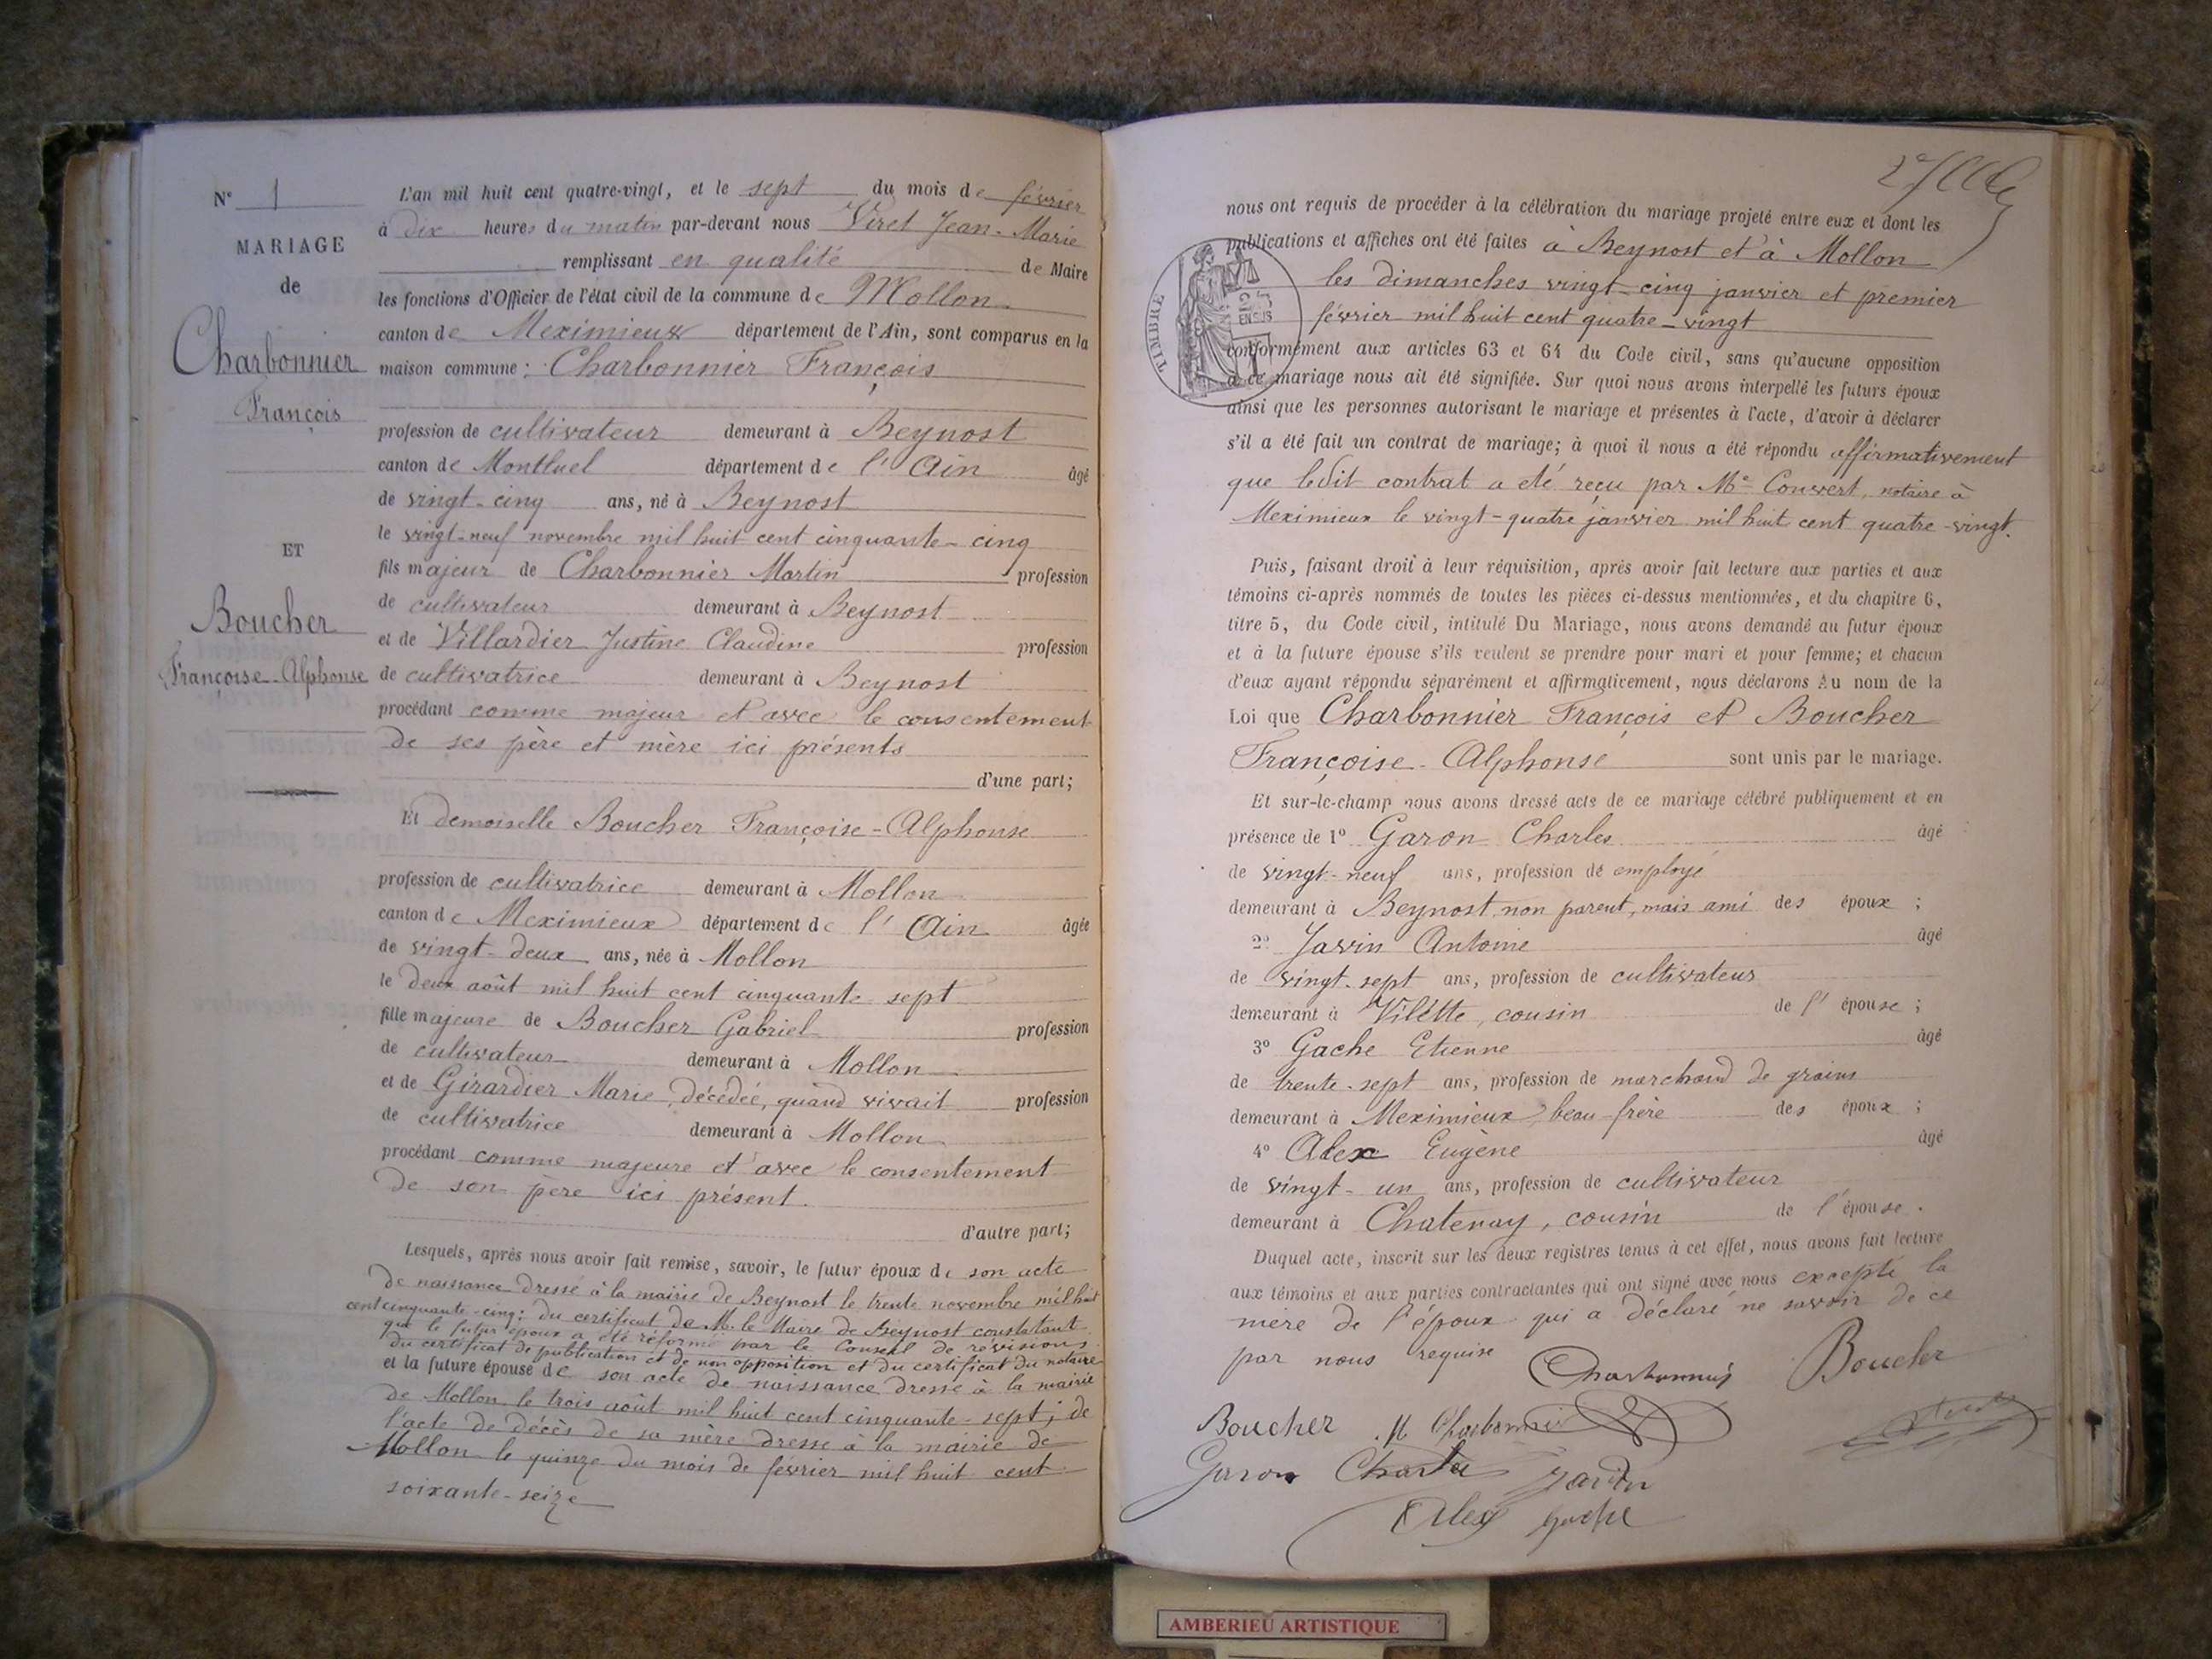 N° 1
MARIAGE
de
Charbonnier
François
ET
Boucher
Françoise-Alphonse
L'an mil huit cent quatre-vingt, et le sept du mois de février
à dix heures du matin par-devant nous Viret Jean-Marie
remplissant en qualité de Maire
les fonctions d'Officier de l'état civil de la commune de Mollon
canton de Meximieux département de l'Ain, sont comparus en la
maison commune : Charbonnier François
profession de cultivateur demeurant à Beynost
canton de Montluel département de l'Ain âgé
de vingt-cinq ans, né à Beynost
le vingt-neuf novembre mil huit cent cinquante-cinq
fils majeur de Charbonnier Martin profession
de cultivateur demeurant à Beynost
et de Villardier Justine Claudine profession
de cultivatrice demeurant à Beynost
procédant comme majeur et avec le consentement
de ses père et mère ici présents
d'une part;
Et demoiselle Boucher Françoise-Alphonse
profession de cultivatrice demeurant à Mollon
canton de Meximieux département de l'Ain âgée
de vingt-deux ans, née à Mollon
le deux août mil huit cent cinquante-sept
fille majeure de Boucher Gabriel profession
de cultivateur demeurant à Mollon
et de Girardier Marie, décédée, quand vivait profession
de cultivatrice demeurant à Mollon
procédant comme majeure et avec le consentement
de son père ici présent.
d'autre part;
Lesquels, après nous avoir fait remise, savoir, le futur époux de son acte
de naissance dressé à la mairie de Beynost le trente novembre mil huit
cent cinquante-cinq; du certificat de M. le Maire de Beynost constatant
que le futur époux a été réformé par le Conseil de révision;
du certificat de publication et de non opposition et du certificat du notaire
et la future épouse de son acte de naissance dressé à la mairie
de Mollon le trois août mil huit cent cinquante-sept; de
l'acte de décès de sa mère dressé à la mairie de
Mollon le quinze du mois de février mil huit cent
soixante-seize
nous ont requis de procéder à la célébration du mariage projeté entre eux et dont les
publications et affiches ont été faites à Beynost et à Mollon
les dimanches vingt-cinq janvier et premier
février mil huit cent quatre-vingt
TIMBRE
conformément aux articles 63 et 64 du Code civil, sans qu'aucune opposition
à ce mariage nous ait été signifiée. Sur quoi nous avons interpellé les futurs époux
ainsi que les personnes autorisant le mariage et présentes à l'acte, d'avoir à déclarer
s'il a été fait un contrat de mariage; à quoi il nous a été répondu affirmativement
que ledit contrat a été reçu par Me Convert, notaire à
Meximieux le vingt-quatre janvier mil huit cent quatre-vingt.
Puis, faisant droit à leur réquisition, après avoir fait lecture aux parties et aux
témoins ci-après nommés de toutes les pièces ci-dessus mentionnées, et du chapitre 6,
titre 5, du Code civil, intitulé Du Mariage, nous avons demandé au futur époux
et à la future épouse s'ils veulent se prendre pour mari et pour femme; et chacun
d'eux ayant répondu séparément et affirmativement, nous déclarons Au nom de la
Loi que Charbonnier François et Boucher
Françoise-Alphonse sont unis par le mariage.
Et sur-le-champ nous avons dressé acte de ce mariage célébré publiquement et en
présence de 1° Garon Charles âgé
de vingt-neuf ans, profession de employé
demeurant à Beynost, non parent, mais ami des époux ;
2° Javin Antoine âgé
de vingt-sept ans, profession de cultivateur
demeurant à Vilette, cousin de l'épouse ;
3° Gache Etienne âgé
de trente-sept ans, profession de marchand de grains
demeurant à Meximieux, beau-frère des époux ;
4° Alex Eugène âgé
de vingt-un ans, profession de cultivateur
demeurant à Chatenay, cousin de l'épouse.
Duquel acte, inscrit sur les deux registres tenus à cet effet, nous avons fait lecture
aux témoins et aux parties contractantes qui ont signé avec nous excepté la
mère de l'époux qui a déclaré ne savoir de ce
par nous requise
Charbonnier Boucher
Boucher M Charbonnier
Garon Charles Javin
Alex Gache
AMBERIEU ARTISTIQUE